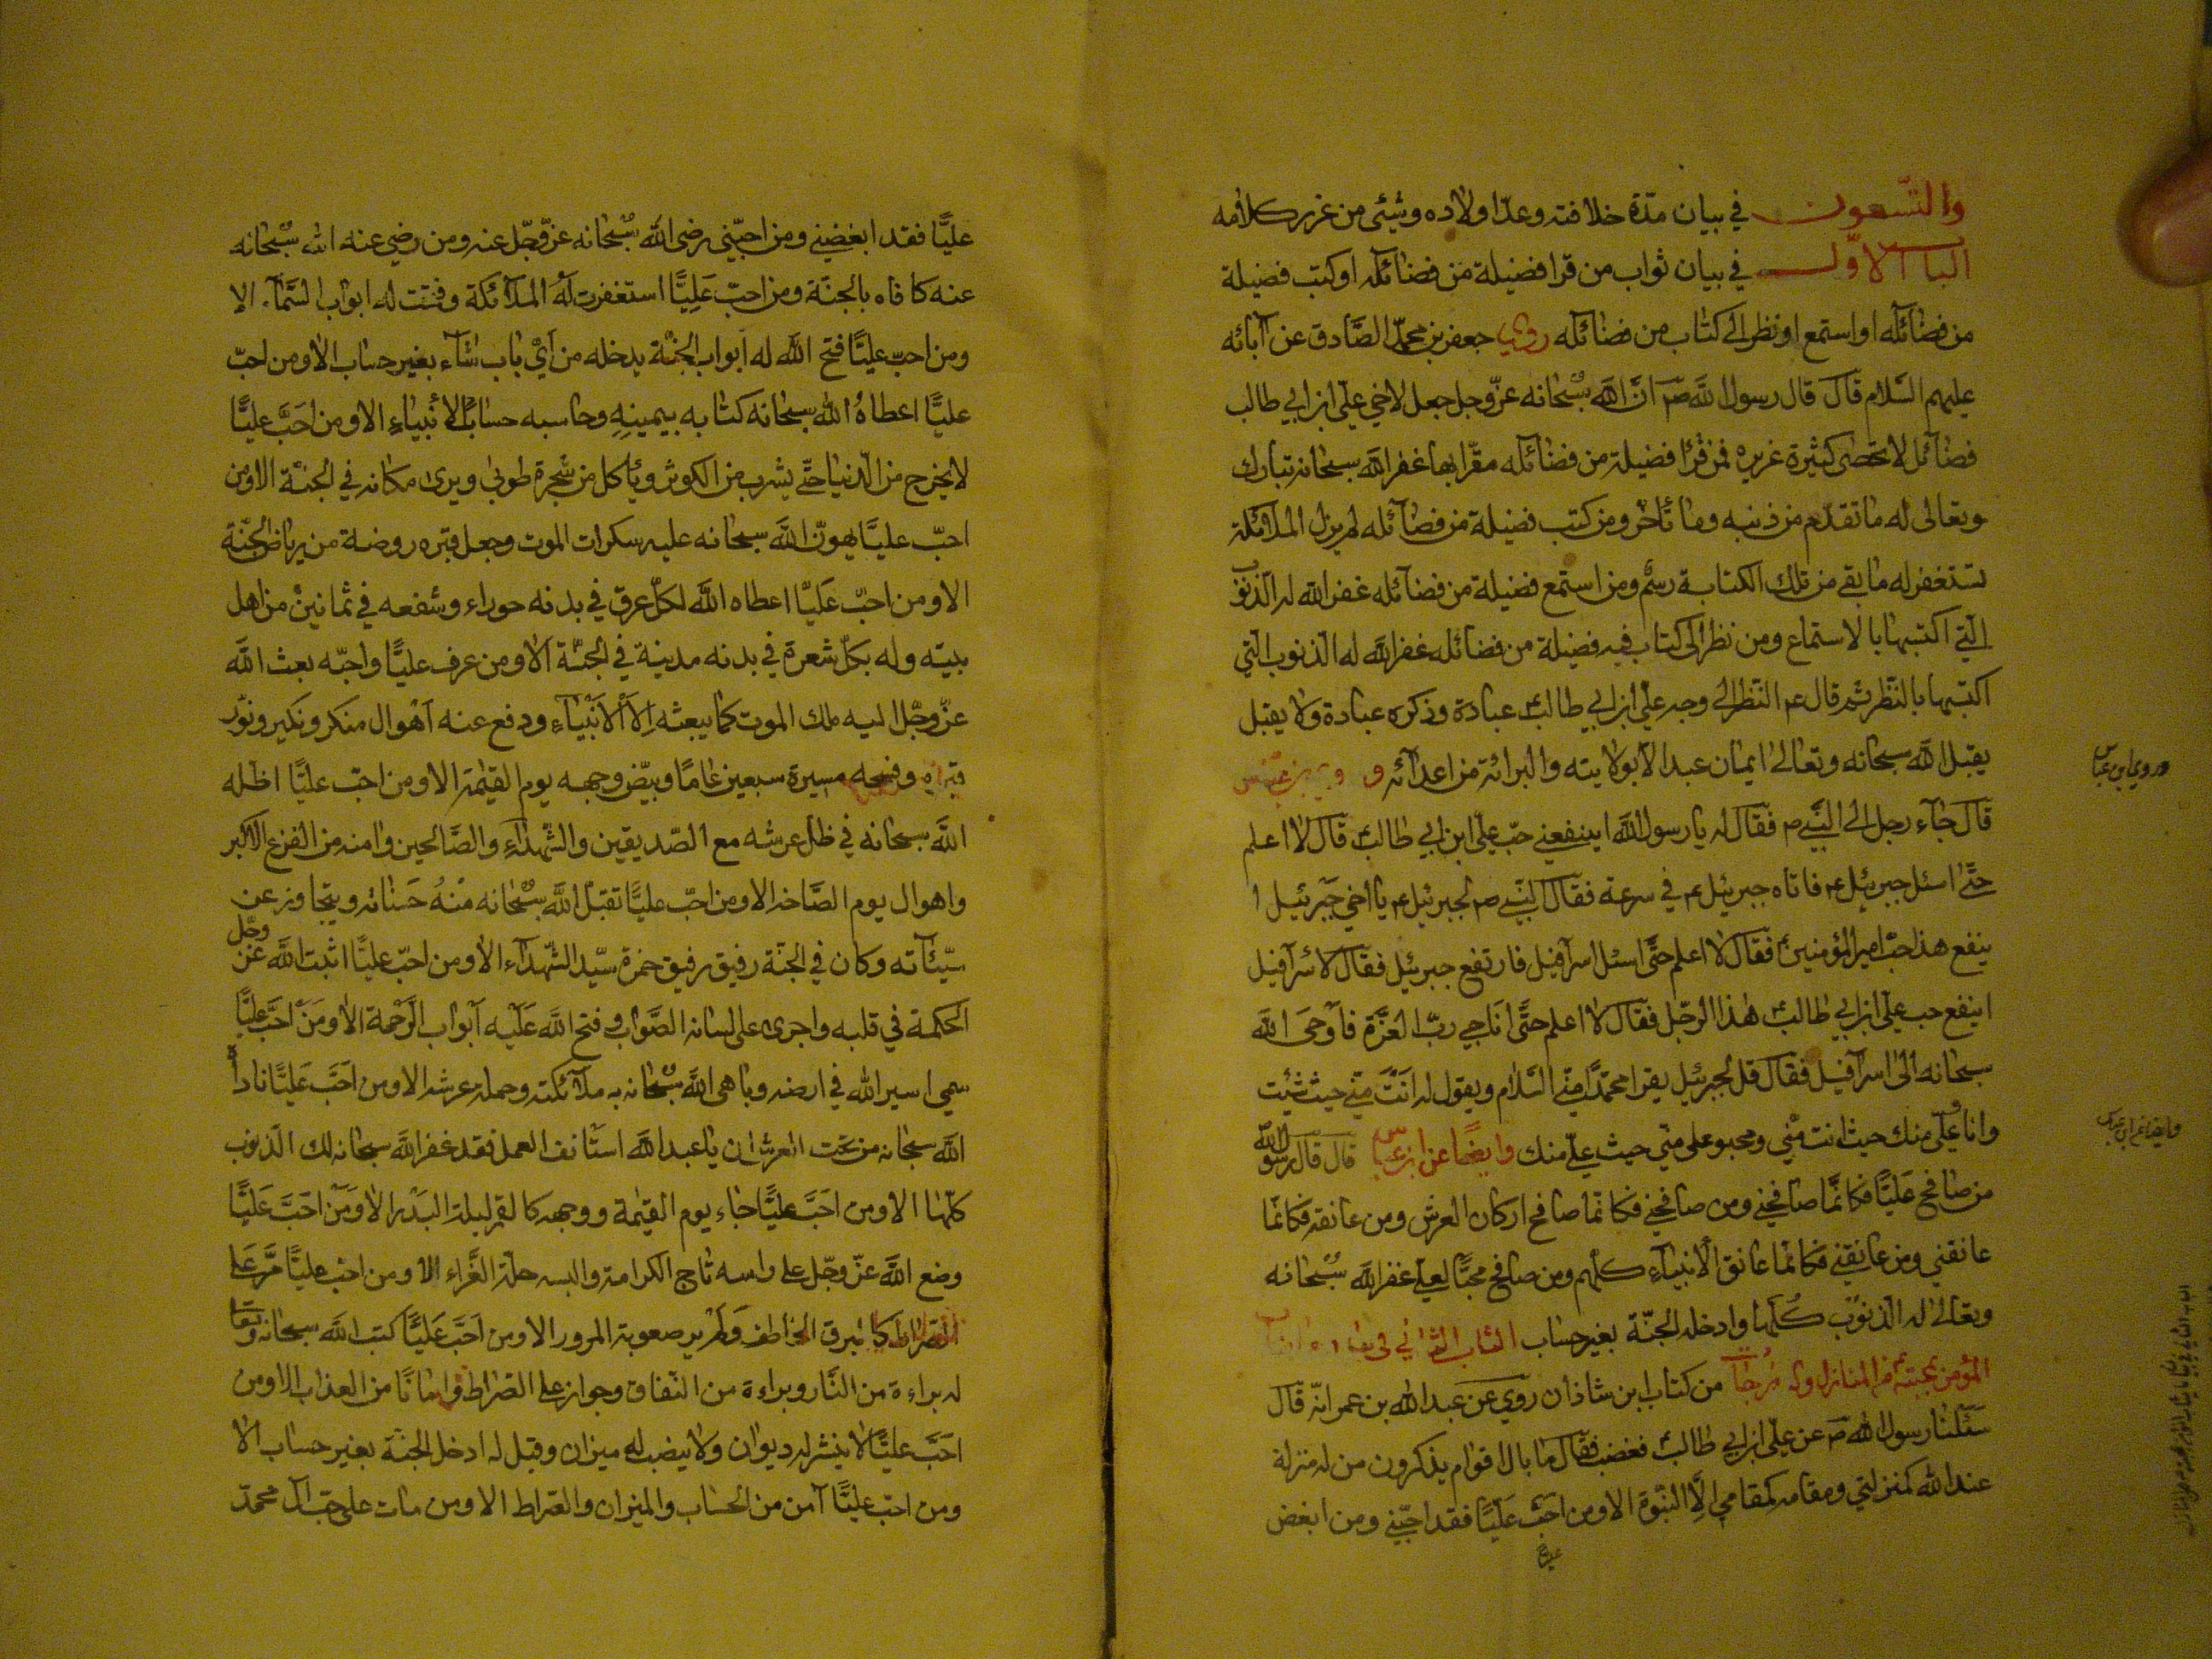 والتسعون في بيان مدّة خلافته وعدّ اولاده وشيئ من غرر كلامه
الباب الاوّل في بيان ثواب من قرا فضيلة من فضائله او كتب فضيلة
من فضائله او استمع او نظر الى كتاب من فضائله روي جعفر بن محمّد الصّادق عن آبائه
عليهم السّلام قال قال رسول الله ص انّ الله سبحانه عزّ وجل جعل لاخي علي ابن ابي طالب
فضائل لا تحصى كثيرة غزيره فمن قرا فضيلة من فضائله مقرّا بها غفر الله سبحانه تبارك
وتعالى له ما تقدّم من ذنبه وما تأخر ومن كتب فضيلة من فضائله لم يزل الملائكة
تستغفر له ما بقي من تلك الكتابة رسم ومن استمع فضيلة من فضائله غفر الله له الذنوب
الّتي اكتسبها بالاستماع ومن نظر الى كتاب فيه فضيلة من فضائله غفر الله له الذنوب التي
اكتسبها بالنّظر ثم قال ع النّظر الى وجه علي ابن ابي طالب عبادة وذكره عبادة ولا يقبل
يقبل الله سبحانه وتعالى ايمان عبد الا بولايته والبرائة من اعدائه
وروي ابن عباس
قال جاء رجل الى النّبي ص فقال له يا رسول الله اينفعني حبّ علي ابن ابي طالب قال لا اعلم
حتّى اسئل جبرئيل ع فاتاه جبرئيل ع في سرعة فقال النبي ص لجبرئيل ع يا اخي جبرئيل ا
ينفع هذا حبّ امير المؤمنين فقال لا اعلم حتّى اسئل اسرآفيل فارتفع جبرئيل فقال لاسرآفيل
اينفع حب علي ابن ابي طالب هذا الرجل فقال لا اعلم حتّى اناجي ربّ العزّة فاوحى الله
سبحانه الى اسرآفيل فقال قل لجبرئيل يقرا محمّدًا منّي السّلام ويقول له انت منّي حيث شئت
وانا وعلي منك حيث انت منّي ومحبو علي منّي حيث علي منك وايضًا عن ابن عباس قال قال رسول الله
من صافح عليّا فكانّما صافحني ومن صافحني فكانّما صافح اركان العرش ومن عانقه فكانّما
عانقني ومن عانقني فكانّما عانق الأنبياء كلّهم ومن صافح محبًّا لعلي غفر الله سبحانه
وتعالى له الذنوب كلّها وادخله الجنّة بغير حساب الباب الثاني في
المؤمن بمحبته من المنازل من كتاب ابن شاذان روي عن عبد الله بن عمر انّه قال
سئلنا رسول الله ص عن علي ابن ابي طالب فغضب فقال ما بال اقوام يذكرون من له منزلة
عند الله كمنزلتي ومقامه كمقامي الّا النبوّة الا ومن احبّ عليًّا فقد احبّني ومن ابغض
عليًّا فقد ابغضني ومن احبّني رضي الله سبحانه عزّ وجّل عنه ومن رضي عنه الله سبحانه
عنه كافاه بالجنّة ومن احبّ عليًّا استغفرت له الملائكة وفتحت له ابواب السّماء الا
ومن احبّ عليًّا فتح الله له ابواب الجنّة يدخله من ايّ باب شآء بغير حساب الا ومن احبّ
عليًّا اعطاه الله سبحانه كتابه بيمينه وحاسبه حساب الأنبياء الا ومن احبّ عليًّا
لا يخرج من الدنيا حتّى يشرب من الكوثر ويأكل من شجرة طوبى ويرى مكانه في الجنّة الا ومن
احبّ عليًّا يهوّن الله سبحانه عليه سكرات الموت وجعل قبره روضة من رياض الجنّة
الا ومن احبّ عليًّا اعطاه الله لكلّ عرق في بدنه حوراء وشفعه في ثمانين من اهل
بيته وله بكلّ شعرة في بدنه مدينة في الجنّة الا ومن عرف عليًّا واحبّه بعث الله
عزّ وجّل اليه ملك الموت كما يبعثه الى الأنبياء ودفع عنه اهوال منكر ونكير ونوّر
قبره وفسحه مسيرة سبعين عامًا وبيّض وجهه يوم القيمة الا ومن احبّ عليًّا اظله
الله سبحانه في ظل عرشه مع الصّديقين والشّهداء والصّالحين وامنه من الفزع الاكبر
واهوال يوم الصّاخه الا ومن احبّ عليًّا تقبل الله سبحانه منه حسناته ويتجاوز عن
سيّئاته وكان في الجنّة رفيق رفيق حمزة سيّد الشّهدآء الا ومن احبّ عليًّا اثبت الله عزّ وجّل
الحكمة في قلبه واجرى على لسانه الصّواب وفتح الله عليه ابواب الرّحمة الا ومن احبّ عليًّا
سمي اسير الله في ارضه وباهى الله سبحانه به ملائكته وحملة عرشه الا ومن احبّ عليًّا ناداه
الله سبحانه من تحت العرش ان يا عبد الله استأنف العمل فقد غفر الله سبحانه لك الذنوب
كلّها الا ومن احبّ عليًّا جاء يوم القيمة ووجهه كالقمر ليلة البدر الا ومن احبّ عليًّا
وضع الله عزّ وجّل على راسه تاج الكرامة والبسه حلة الغرّاء الا ومن احبّ عليًّا مرّ على
الصّراط كالبرق الخاطف ولم ير صعوبة المرور الا ومن احبّ عليًّا كتب الله سبحانه وتعا
له براءة من النّار وبراءة من النّفاق وجواز على الصّراط وامانًا من العذاب الا ومن
احبّ عليًّا لا ينشر له ديوان ولا ينصب له ميزان وقيل له ادخل الجنّة بغير حساب الا
ومن احبّ عليًّا آمن من الحساب والميزان والصّراط الا ومن مات على حبّ آل محمّد